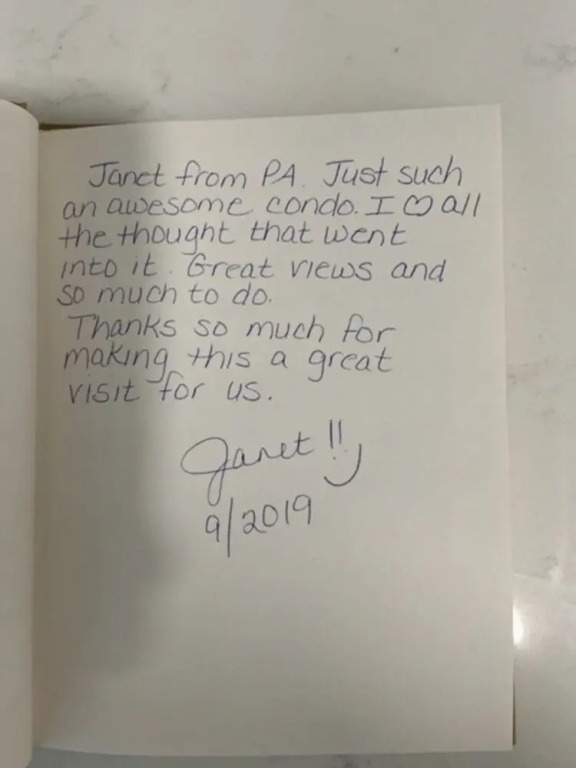 Janet from PA. Just such
an awesome condo. I ♡ all
the thought that went
into it. Great views and
so much to do.
Thanks so much for
making this a great
visit for us.
Janet !!
9/2019